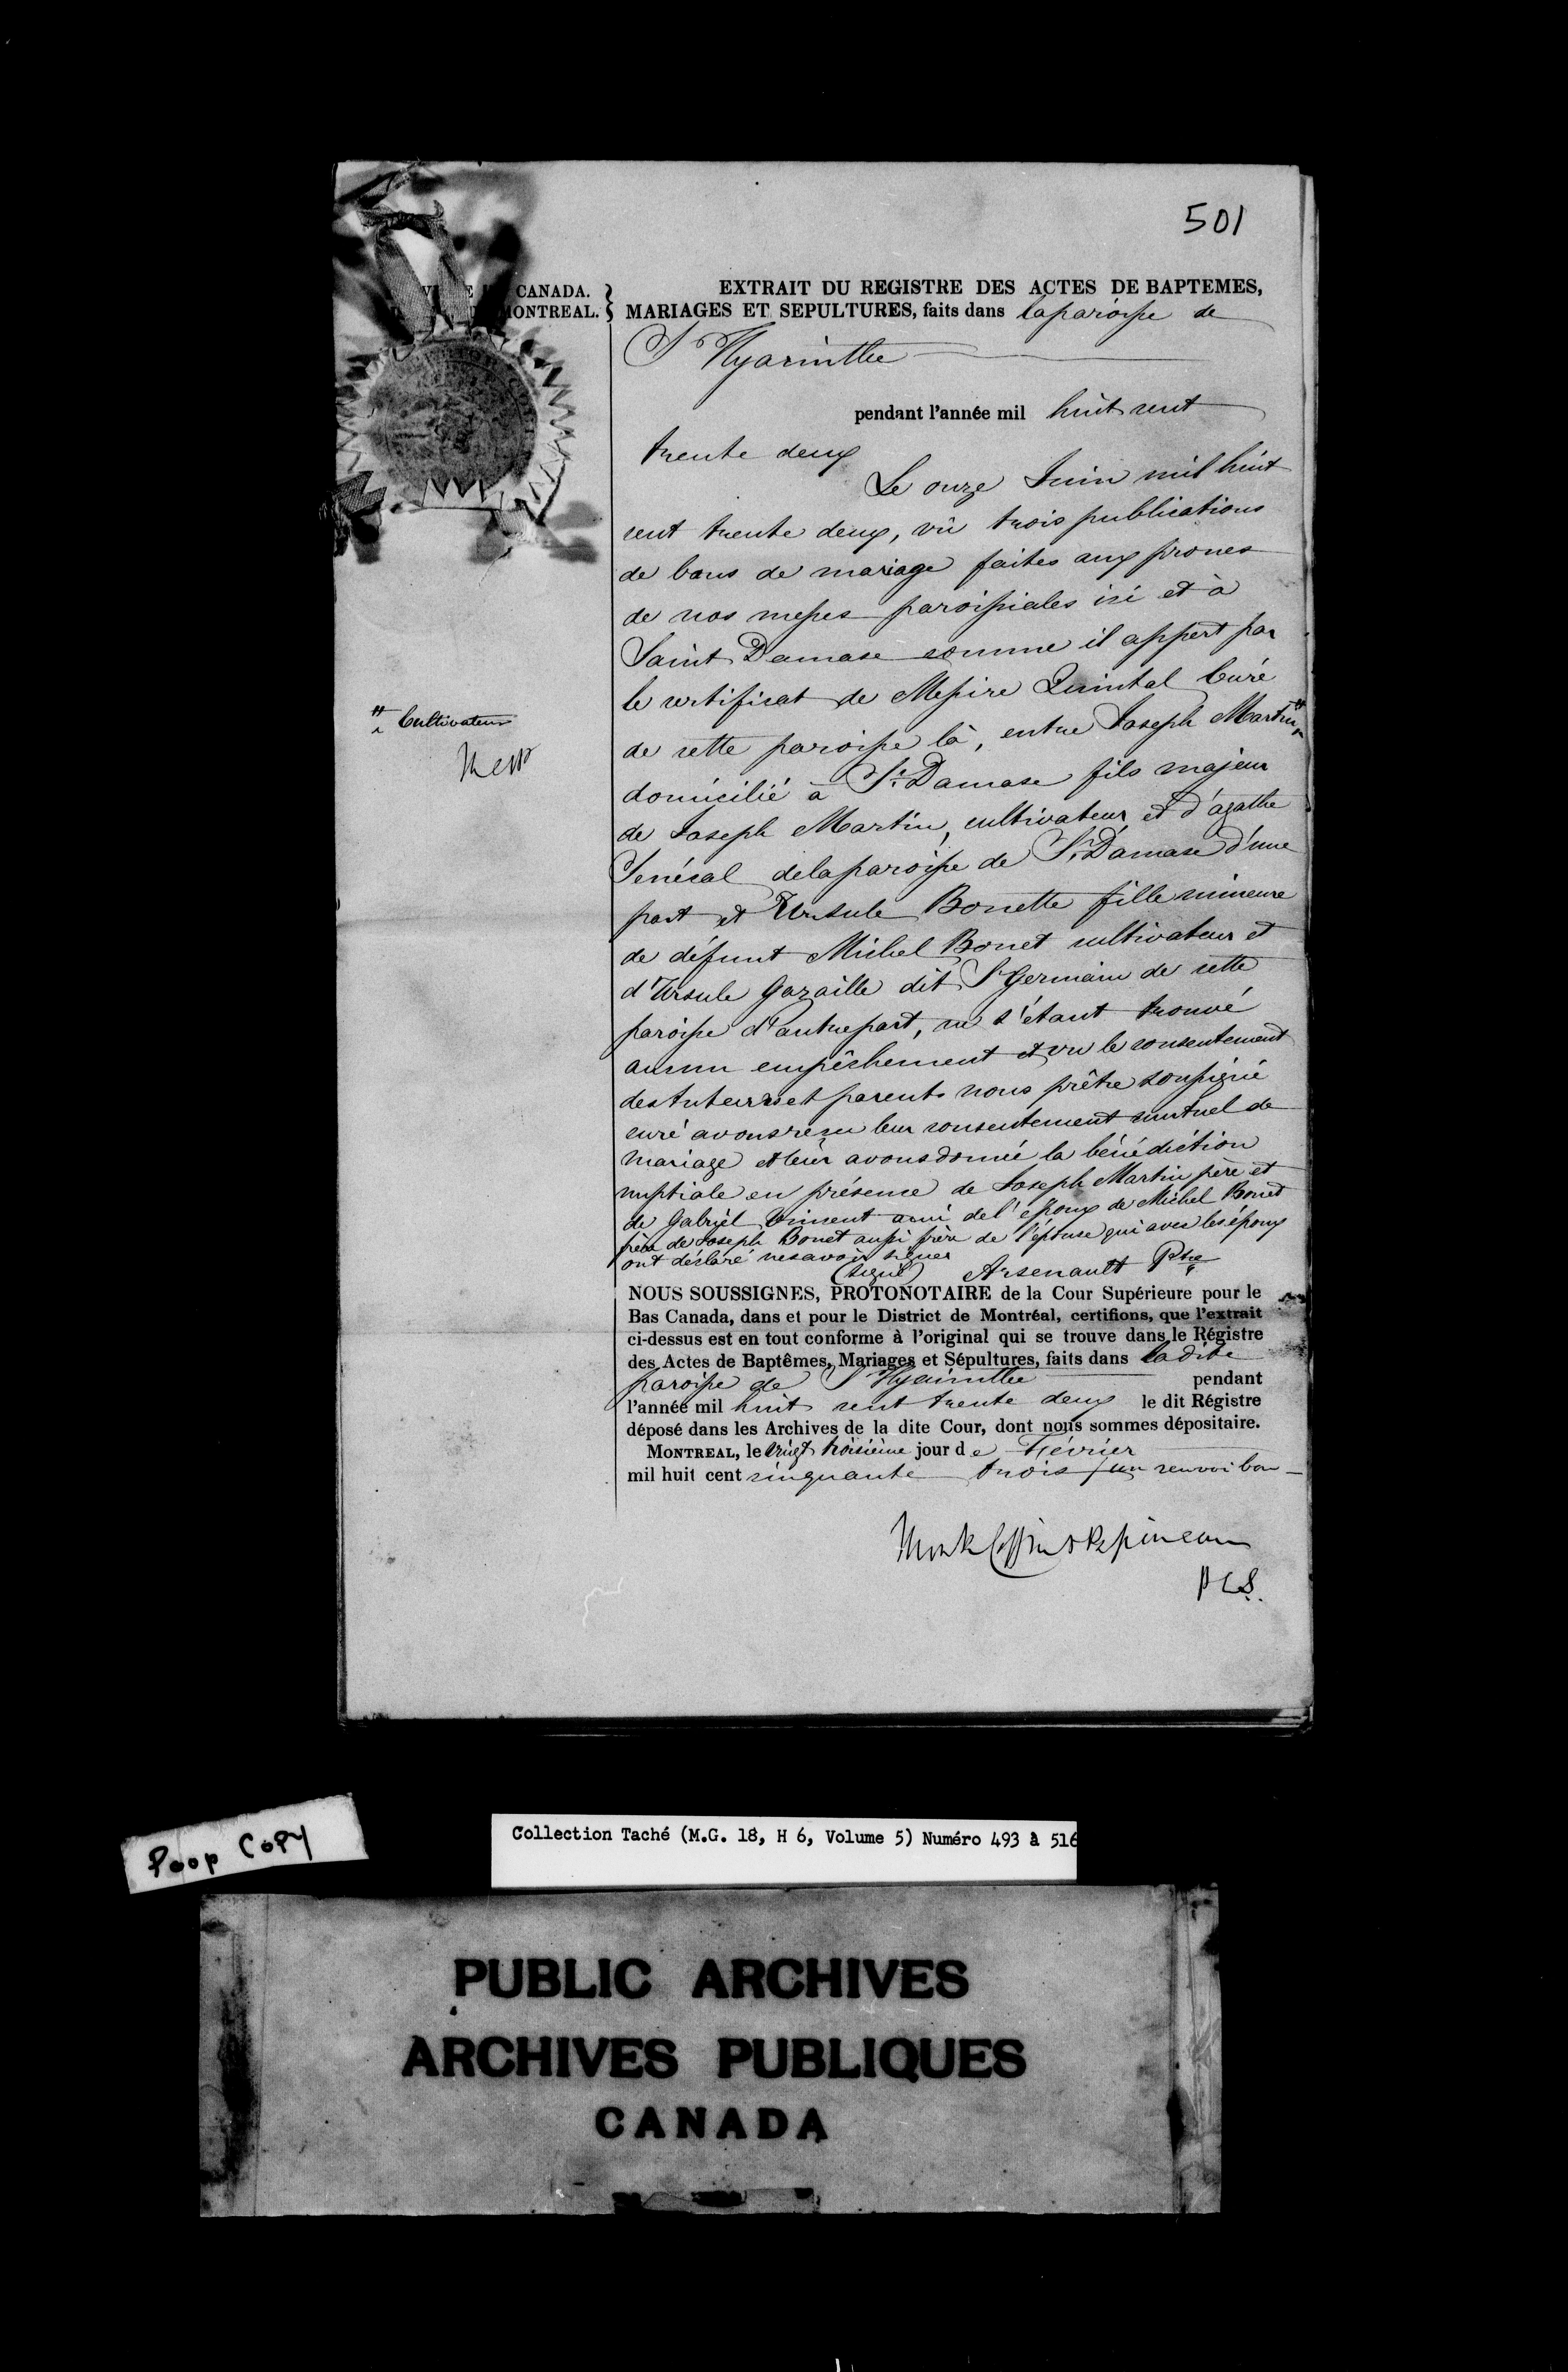 501
CANADA.
MONTREAL.
EXTRAIT DU REGISTRE DES ACTES DE BAPTEMES,
MARIAGES ET SEPULTURES, faits dans la paroisse de
St Hyacinthe
pendant l'année mil huit cent
trente deux
Le onze Juin mil huit
cent trente deux, vû trois publications
de bans de mariage faites aux prones
de nos messes paroissiales ici et à
Saint Damase comme il appert par
le certificat de Messire Quintal Curé
de cette paroisse là, entre Joseph Martin #
# Cultivateur
domicilié à St. Damase fils majeur
de Joseph Martin, cultivateur et d'agathe
Senécal de la paroisse de St. Damase d'une
part et Ursule Bonette fille mineure
de défunt Michel Bonet cultivateur et
d'Ursule Gazaille dit St Germain de cette
paroisse d'autre part, ne s'étant trouvé
aucun empêchement et vu le consentement
des tuteurs et parents nous prêtre soussigné
curé avons reçu leur consentement mutuel de
mariage et leur avons donné la bénédiction
nuptiale en présence de Joseph Martin père et
de Gabriel Vincent ami de l'époux de Michel Bonet
frère de Joseph Bonet aussi frère de l'épouse qui avec les époux
ont déclaré ne savoir signer
(signé) Arsenault Ptre
NOUS SOUSSIGNES, PROTONOTAIRE de la Cour Supérieure pour le
Bas Canada, dans et pour le District de Montréal, certifions, que l'extrait
ci-dessus est en tout conforme à l'original qui se trouve dans le Régistre
des Actes de Baptêmes, Mariages et Sépultures, faits dans la dite
paroisse de St Hyacinthe pendant
l'année mil huit cent trente deux le dit Régistre
déposé dans les Archives de la dite Cour, dont nous sommes dépositaire.
MONTREAL, le vingt troisième jour de Février
mil huit cent cinquante trois / un renvoi bon
Monk Coffin & Papineau
P C S.
Poop COPY
Collection Taché (M.G. 18, H 6, Volume 5) Numéro 493 à 516
PUBLIC ARCHIVES
ARCHIVES PUBLIQUES
CANADA